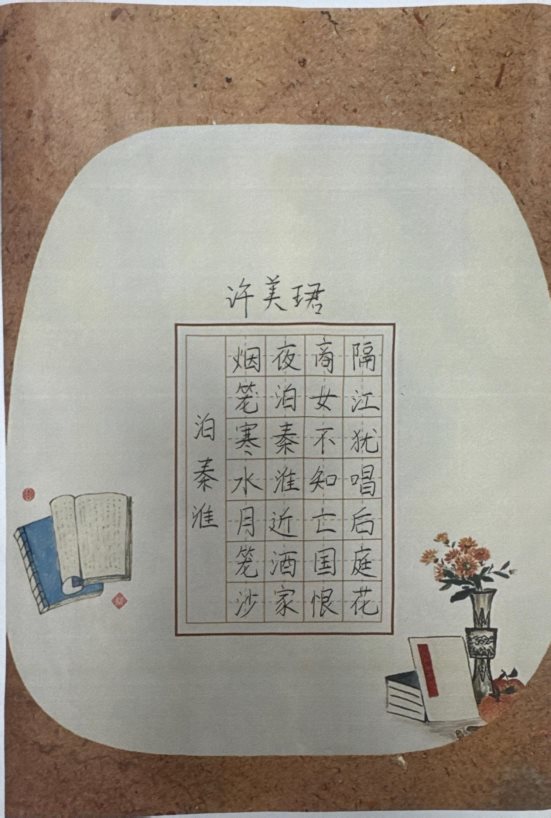 许美珺
泊秦淮
烟笼寒水月笼沙
夜泊秦淮近酒家
商女不知亡国恨
隔江犹唱后庭花